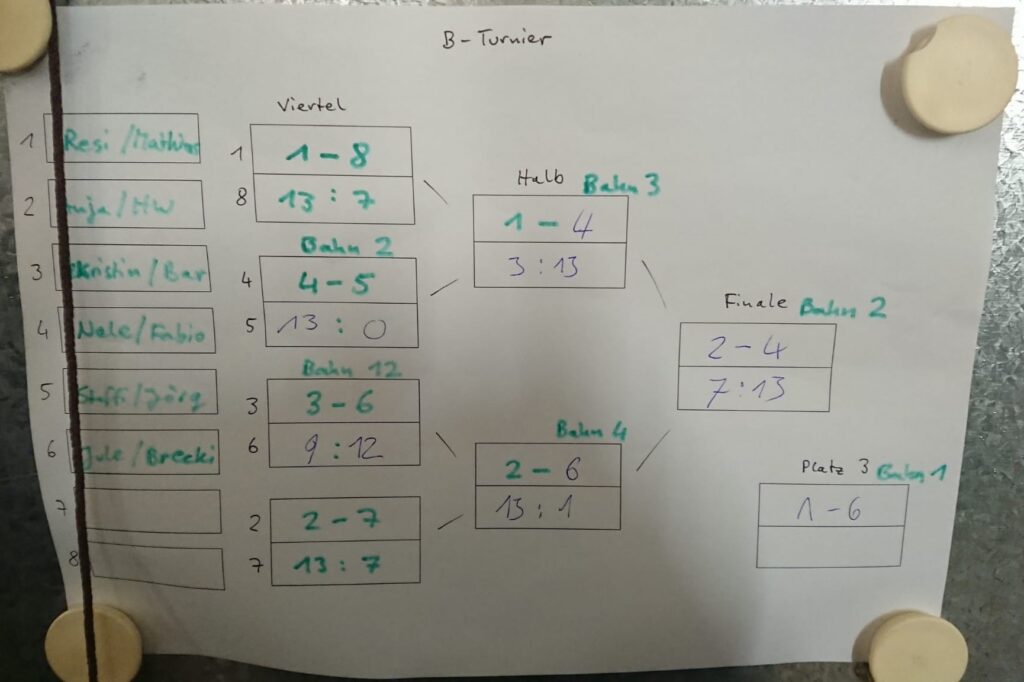 B-Turnier
1 Resi/Mathias
2 /HW
3 Kristin/Bar
4 Nele/Fabio
5 Steffi/Jörg
6 Jule/Brecki
7
8
Viertel
1
8
1-8
13:7
Bahn 2
4
5
4-5
13:0
Bahn 12
3
6
3-6
9:12
2
7
2-7
13:7
Halb Bahn 3
1-4
3:13
Bahn 4
2-6
13:1
Finale Bahn 2
2-4
7:13
Platz 3 Bahn 1
1-6